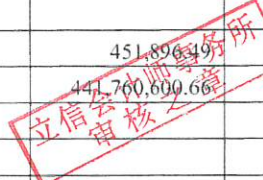 451,896.49
441,760,600.66
立信会计师事务所
审核之章